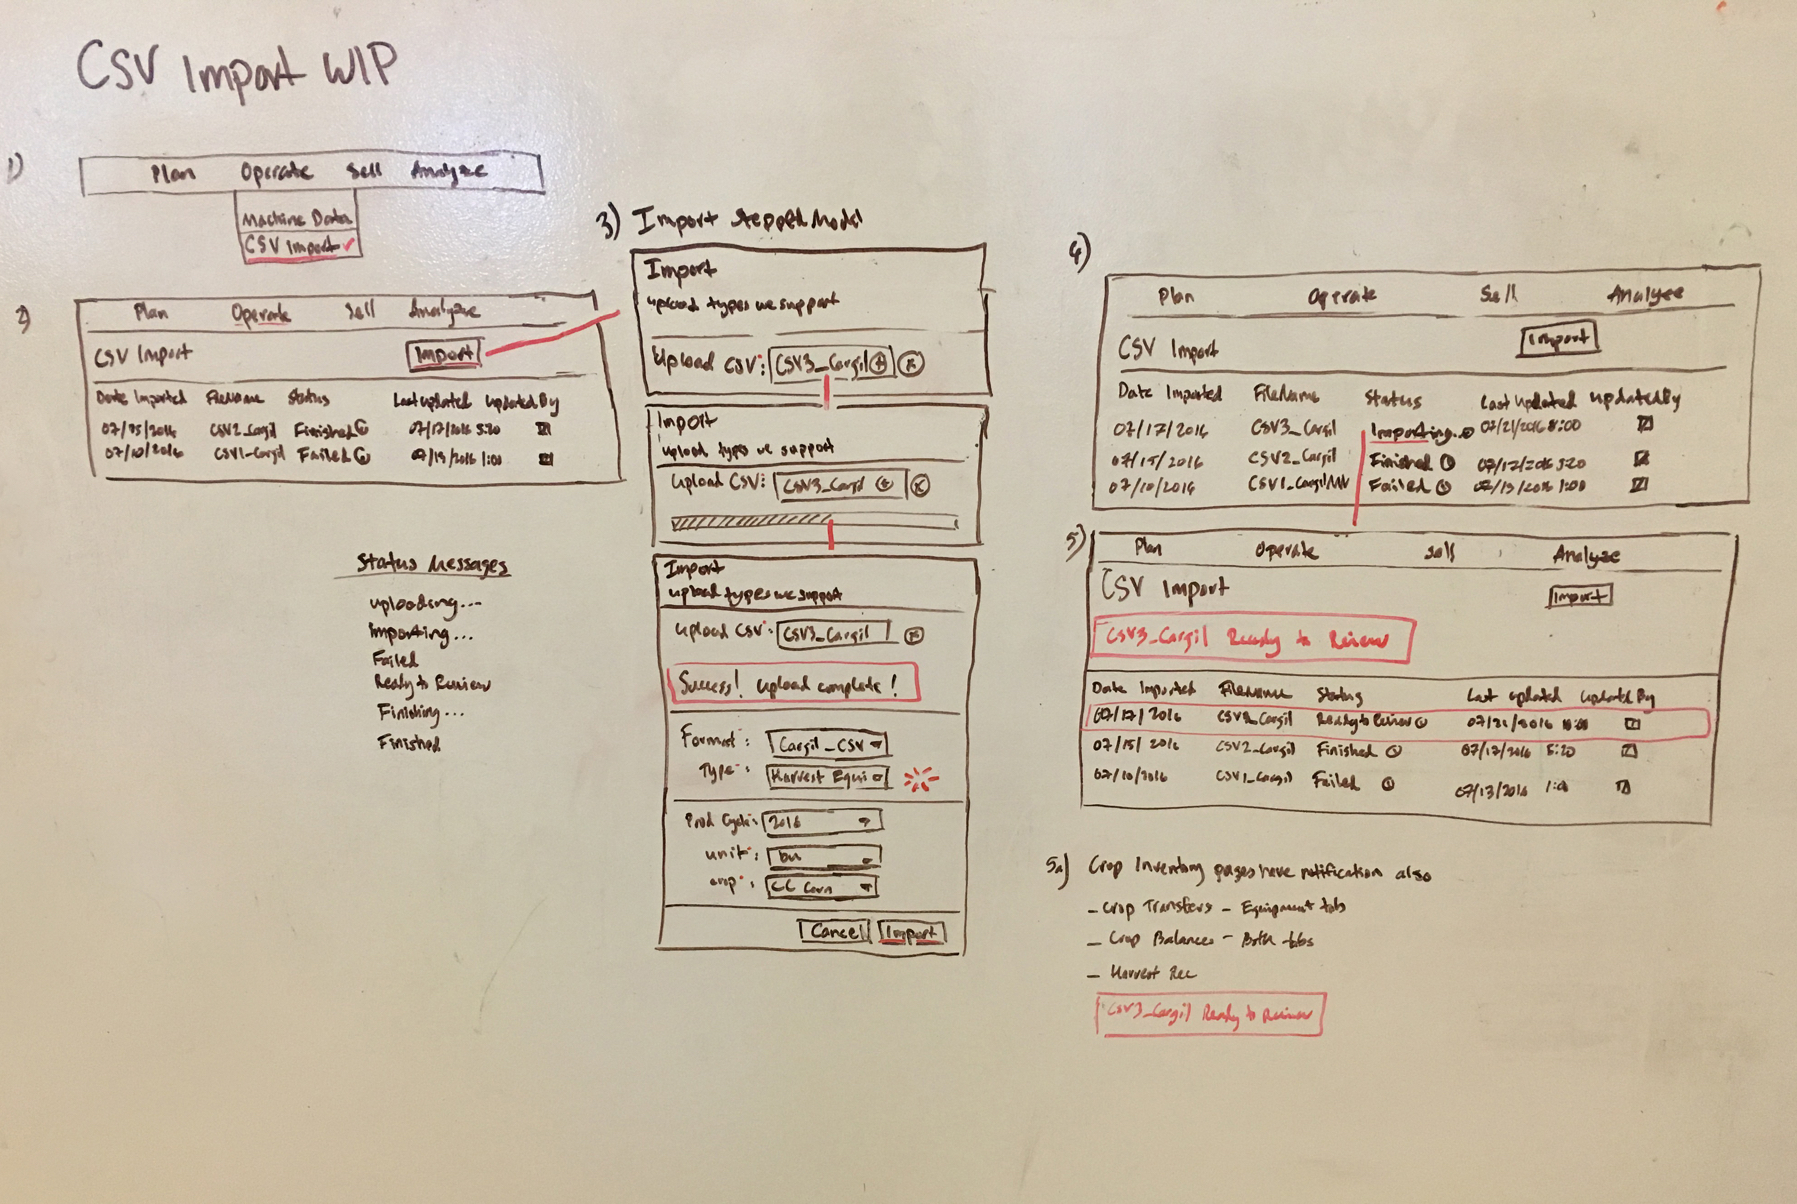 CSV Import WIP
1)
Plan Operate Sell Analyze
Machine Data
CSV Import
2)
Plan Operate Sell Analyze
CSV Import Import
Date Imported FileName Status Last updated updated By
07/15/2016 CSV2_Cargil Finished 07/17/2016 5:20
07/10/2016 CSV1_Cargil Failed 07/13/2016 1:00
Status Messages
uploading...
importing...
Failed
Ready to Review
Finishing...
Finished
3) Import Stepped Modal
Import
upload types we support
Upload CSV: CSV3_Cargil
Import
upload types we support
Upload CSV: CSV3_Cargil
Import
upload types we support
Upload CSV: CSV3_Cargil
Success! Upload complete!
Format: Cargil_CSV
Type: Harvest Equi
Prod Cycle: 2016
unit: bu
crop: CC Corn
Cancel Import
4)
Plan Operate Sell Analyze
CSV Import Import
Date Imported FileName Status Last Updated updated By
07/17/2016 CSV3_Cargil Importing.. 07/21/2016 8:00
07/15/2016 CSV2_Cargil Finished 07/17/2016 5:20
07/10/2016 CSV1_Cargil Failed 07/13/2016 1:00
5)
Plan Operate Sell Analyze
CSV Import Import
CSV3_Cargil Ready to Review
Date Imported FileName Status Last updated updated By
07/17/2016 CSV3_Cargil Ready to Review 07/21/2016
07/15/2016 CSV2_Cargil Finished 07/17/2016 5:20
07/10/2016 CSV1_Cargil Failed 07/13/2016 1:00
5a) Crop Inventory pages have notification also
- Crop Transfers - Equipment tab
- Crop Balances - Both tabs
- Harvest Rec
CSV3_Cargil Ready to Review